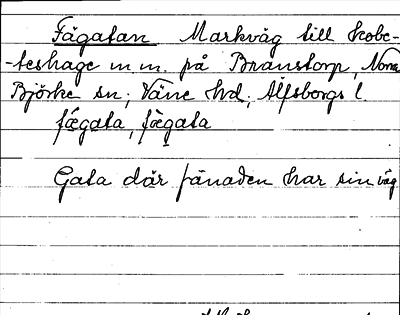 Fägatan Markväg till kobe-
-teshage m.m. på Branstorp, Norra
Björke sn; Väne hd; Älfsborgs l.
fǽgata, fǽgata
Gata där fänaden har sin väg